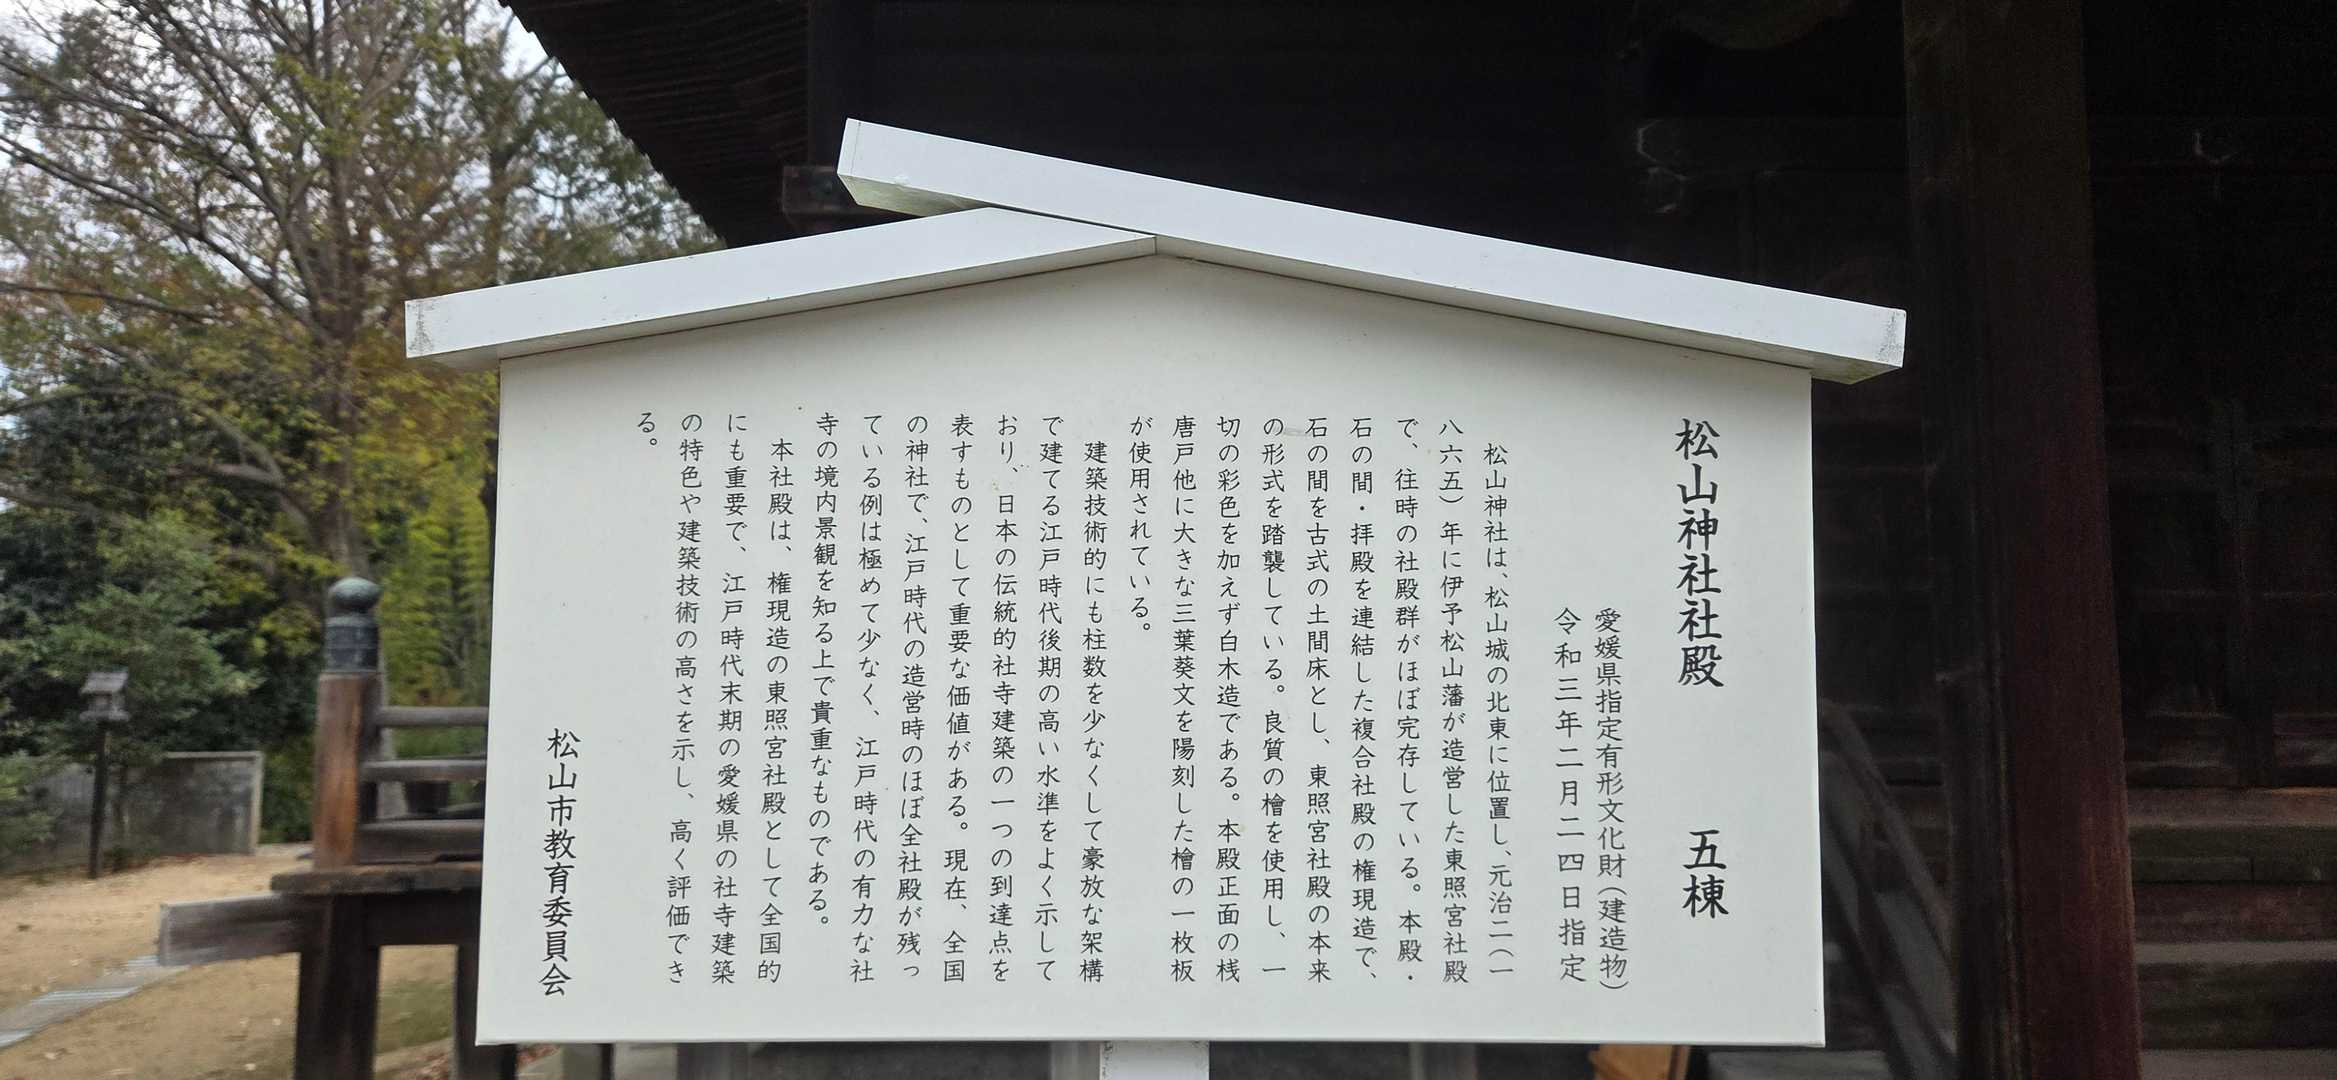 松山神社社殿　五棟
愛媛県指定有形文化財（建造物）
令和三年二月二四日指定
松山神社は、松山城の北東に位置し、元治二（一
八六五）年に伊予松山藩が造営した東照宮社殿
で、往時の社殿群がほぼ完存している。本殿・
石の間・拝殿を連結した複合社殿の権現造で、
石の間を古式の土間床とし、東照宮社殿の本来
の形式を踏襲している。良質の檜を使用し、一
切の彩色を加えず白木造である。本殿正面の桟
唐戸他に大きな三葉葵文を陽刻した檜の一枚板
が使用されている。
建築技術的にも柱数を少なくして豪放な架構
で建てる江戸時代後期の高い水準をよく示して
おり、日本の伝統的社寺建築の一つの到達点を
表すものとして重要な価値がある。現在、全国
の神社で、江戸時代の造営時のほぼ全社殿が残っ
ている例は極めて少なく、江戸時代の有力な社
寺の境内景観を知る上で貴重なものである。
本社殿は、権現造の東照宮社殿として全国的
にも重要で、江戸時代末期の愛媛県の社寺建築
の特色や建築技術の高さを示し、高く評価でき
る。
松山市教育委員会